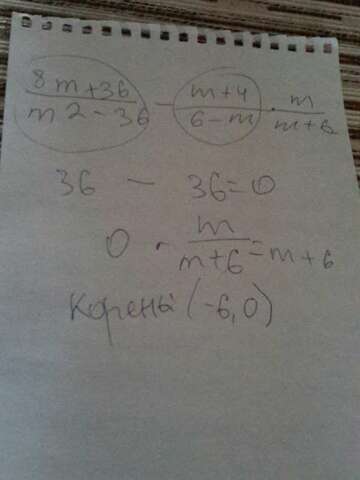 8m+36 / m2-36 - m+4 / 6-m · m / m+6
36 - 36=0
0 · m / m+6 =m+6
Корены (-6,0)